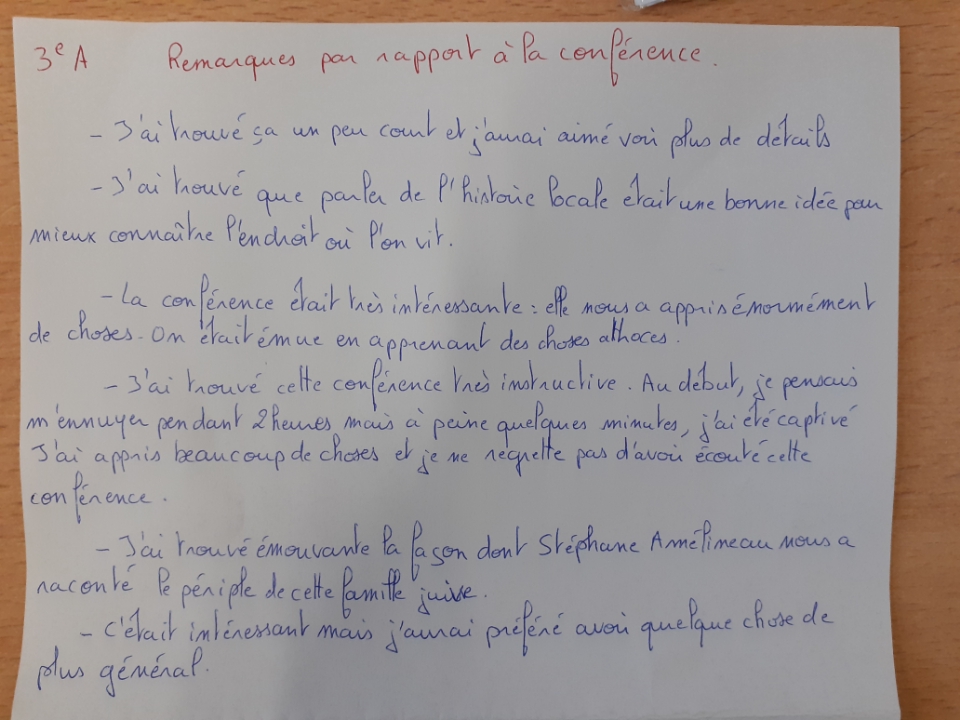 3e A Remarques par rapport à la conférence.
- J'ai trouvé ça un peu court et j'aurai aimé voir plus de détails
- J'ai trouvé que parler de l'histoire locale était une bonne idée pour
mieux connaître l'endroit où l'on vit.
- La conférence était très intéressante : elle nous a appris énormément
de choses. On était émue en apprenant des choses athoces.
- J'ai trouvé cette conférence très instructive. Au début, je pensais
m'ennuyer pendant 2 heures mais à peine quelques minutes, j'ai été captivé
J'ai appris beaucoup de choses et je ne regrette pas d'avoir écouté cette
conférence.
- J'ai trouvé émouvante la façon dont Stéphane Amélineau nous a
raconté le périple de cette famille juive.
- C'était intéressant mais j'aurai préféré avoir quelque chose de
plus général.